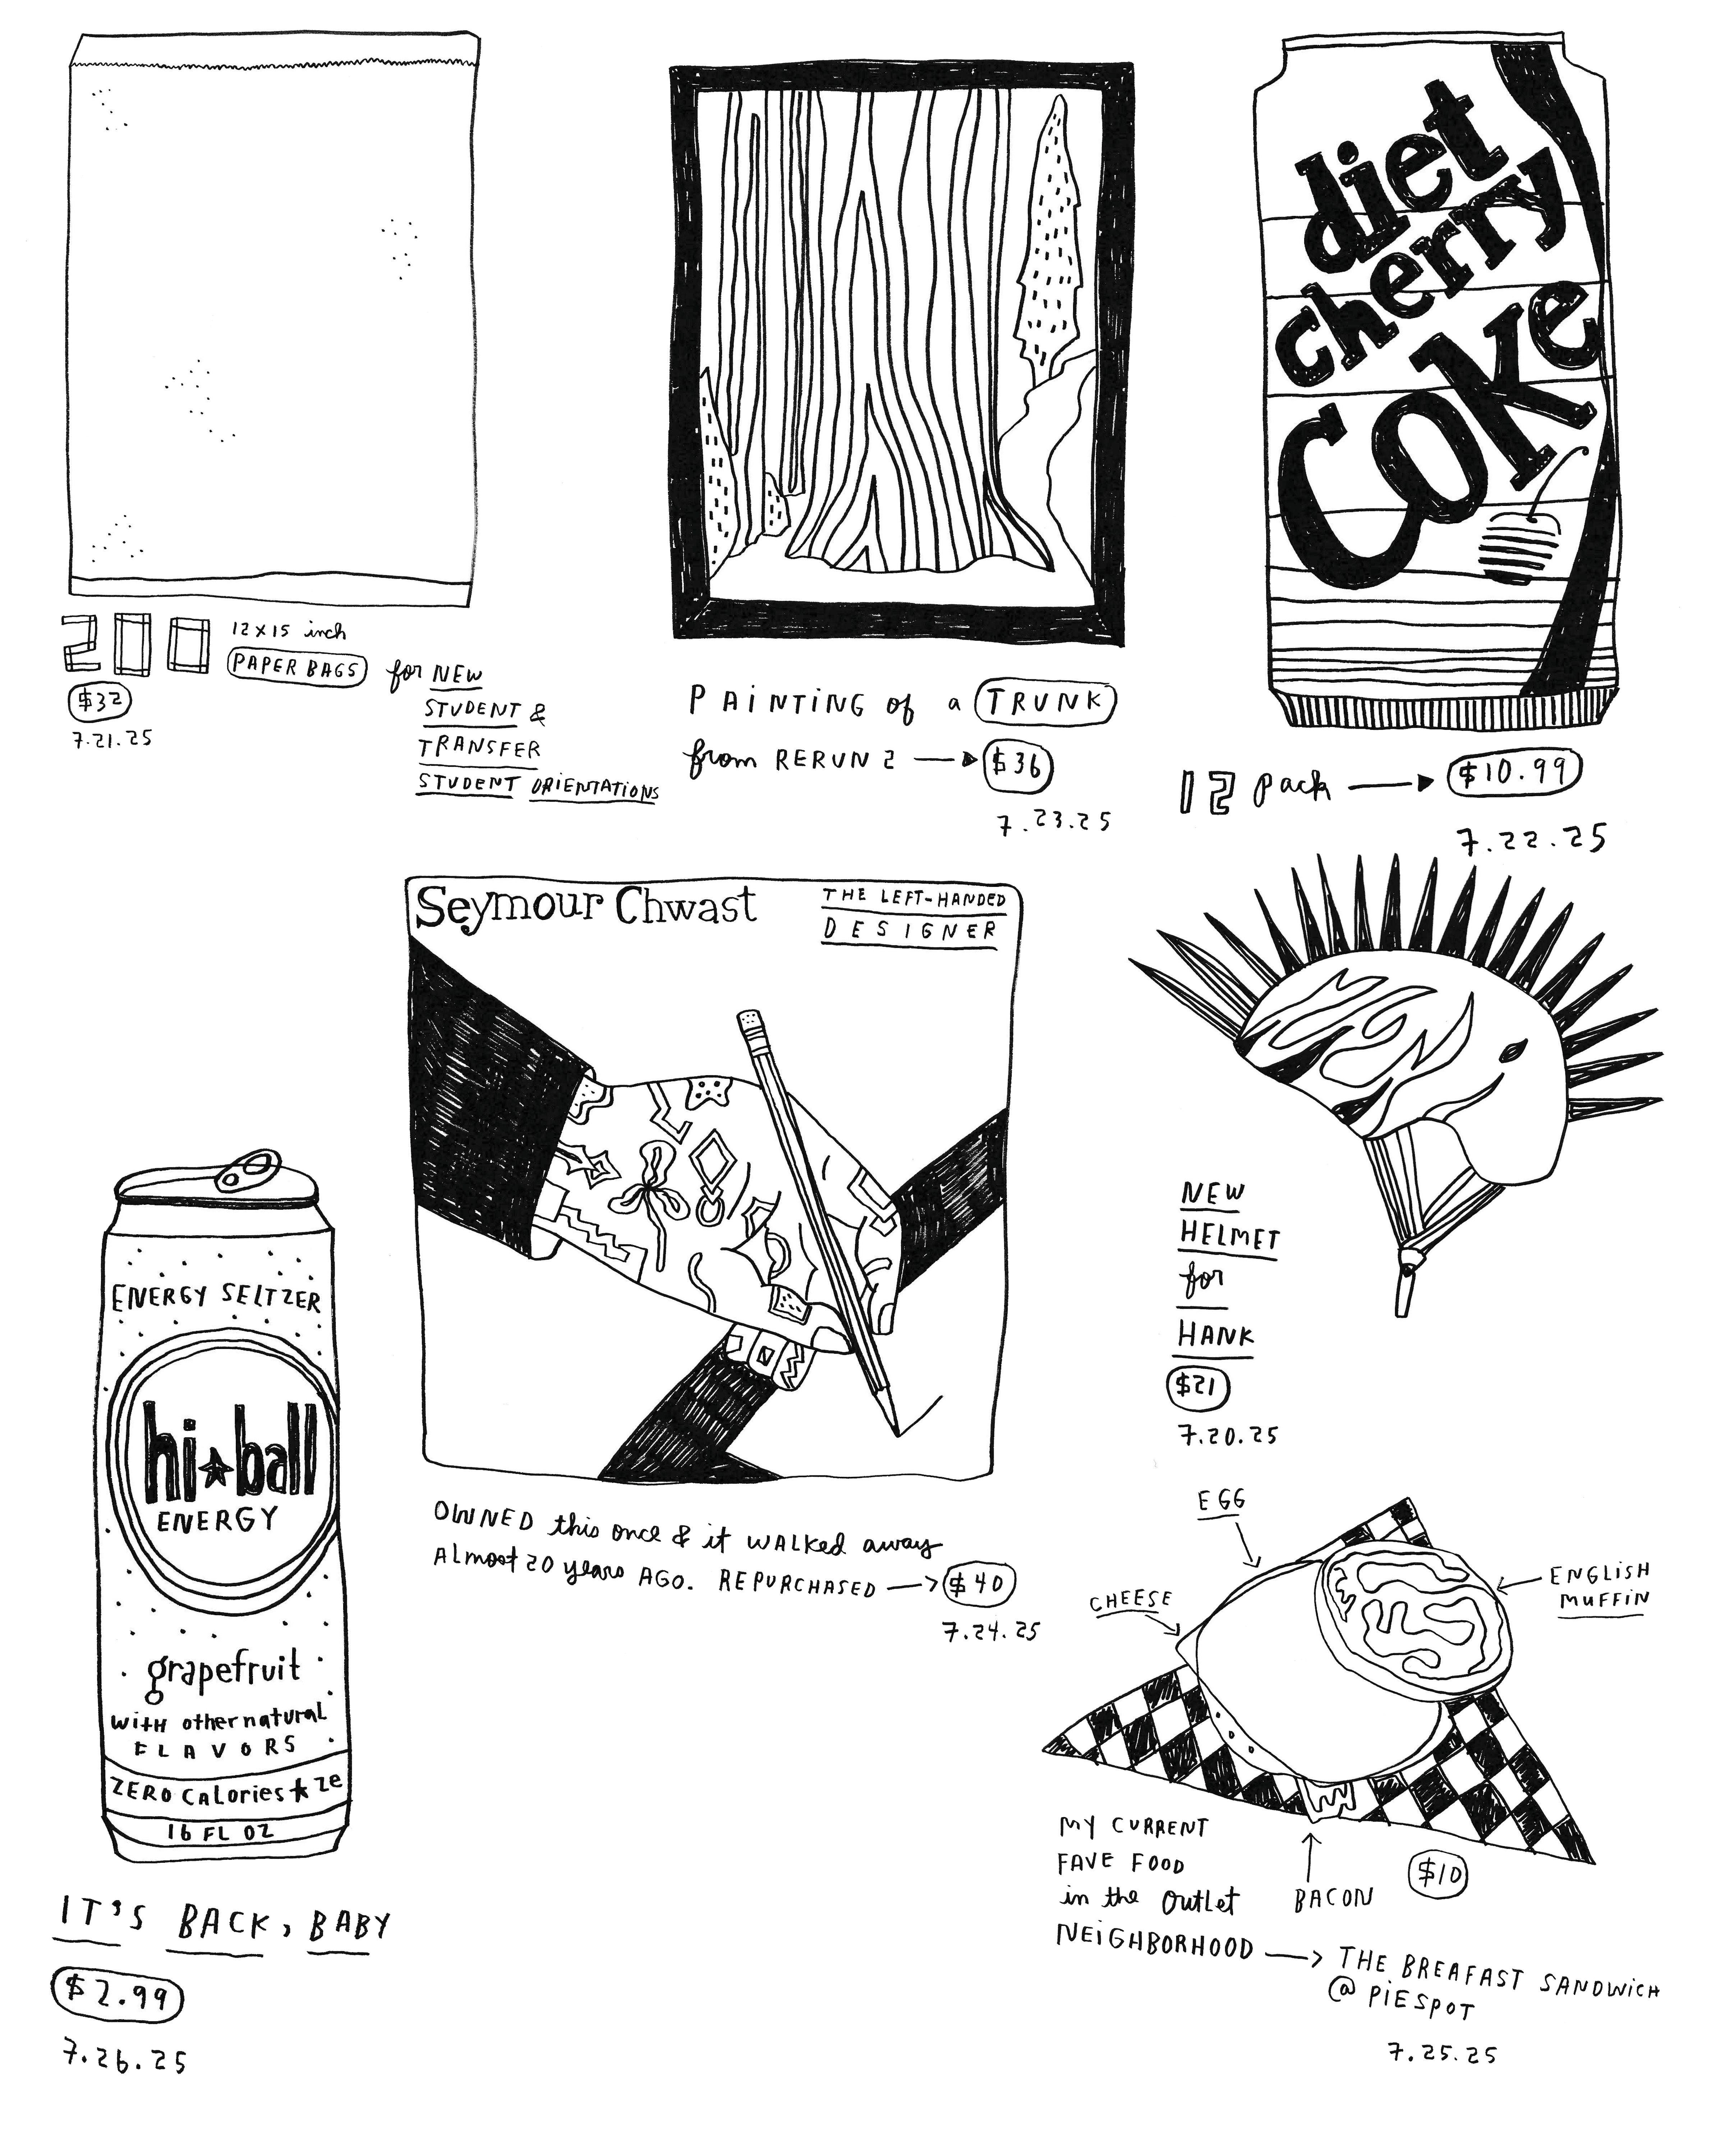 200
12x15 inch
PAPER BAGS
for NEW
STUDENT &
TRANSFER
STUDENT ORIENTATIONS
$32
7.21.25
PAINTING of a TRUNK
from RERUN 2 → $36
7.23.25
diet
cherry
Coke
12 pack → $10.99
7.22.25
Seymour Chwast
THE LEFT-HANDED
DESIGNER
OWNED this once & it WALKed away
Almost 20 years AGO. REPURCHASED → $40
7.24.25
NEW
HELMET
for
HANK
$21
7.20.25
ENERGY SELTZER
hi★ball
ENERGY
grapefruit
with other natural
FLAVORS
ZERO Calories ★ Ze
16 FL OZ
IT'S BACK, BABY
$2.99
7.26.25
EGG
CHEESE
ENGLISH
MUFFIN
BACON
$10
MY CURRENT
FAVE FOOD
in the Outlet
NEIGHBORHOOD → THE BREAFAST SANDWICH
@ PIE SPOT
7.25.25